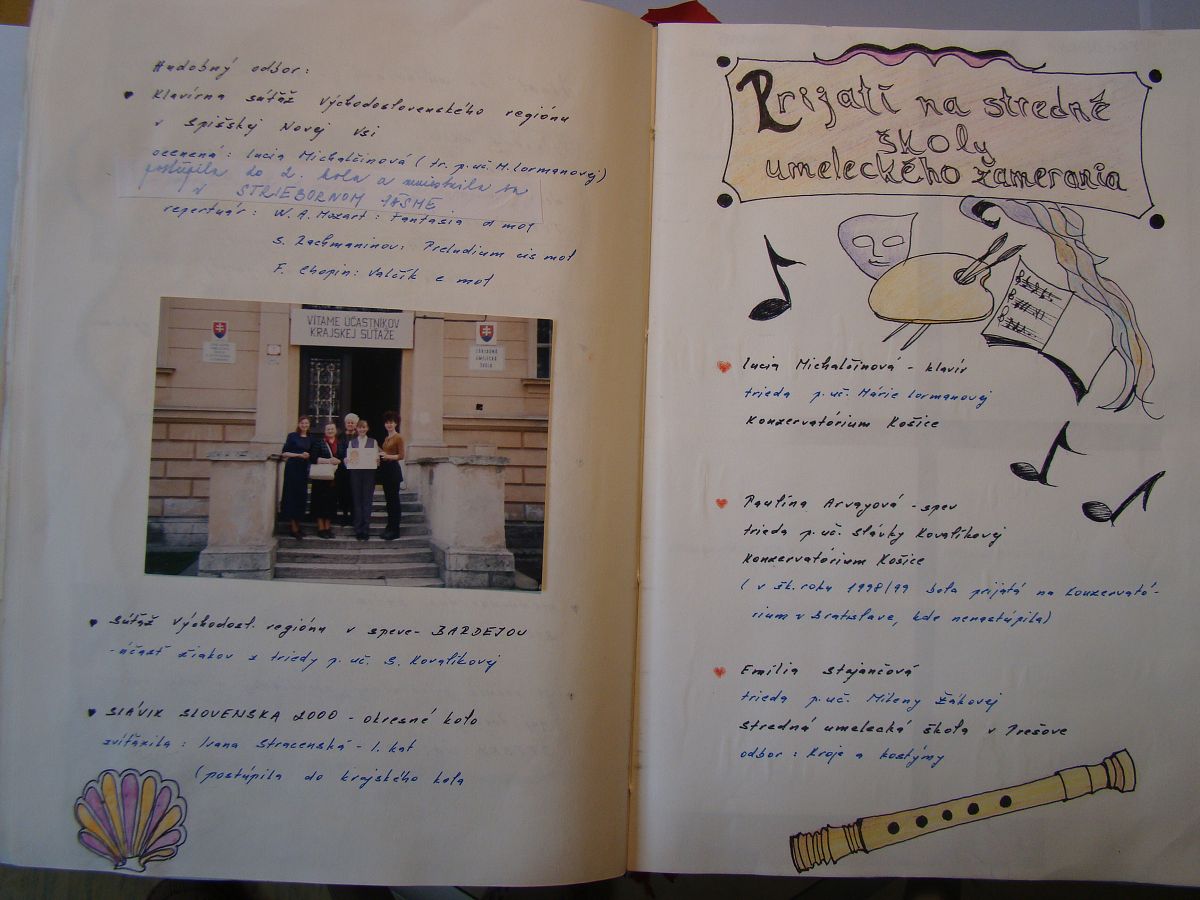 Hudobný odbor:
Klavírna súťaž Východoslovenského regiónu
v Spišskej Novej Vsi
ocenená: Lucia Michalčinová (tr. p. uč. M. Lormanovej)
postúpila do 2. kola a umiestnila sa
v STRIEBORNOM PÁSME
repertuár: W. A. Mozart: Fantasia d mol
S. Rachmaninov: Preludium cis mol
F. Chopin: Valčík e mol
VÍTAME ÚČASTNÍKOV
KRAJSKEJ SÚŤAŽE
ZÁKLADNÁ
UMELECKÁ
ŠKOLA
Súťaž Východosl. regiónu v speve - BARDEJOV
- účasť žiakov z triedy p. uč. S. Kovalíkovej
SLÁVIK SLOVENSKA 2000 - okresné kolo
zvíťazila: Ivana Stracenská - I. kat
(postúpila do krajského kola
Prijatí na stredné
školy
umeleckého zamerania
Lucia Michalčinová - klavír
trieda p. uč. Márie Lormanovej
Konzervatórium Košice
Paulína Arvayová - spev
trieda p. uč. Slávky Kovalíkovej
Konzervatórium Košice
(v šk. roku 1998/99 bola prijatá na Konzervató-
rium v Bratislave, kde nenastúpila)
Emília Stajančová
trieda p. uč. Mileny Žákovej
Stredná umelecká škola v Prešove
odbor: Kroje a kostýmy